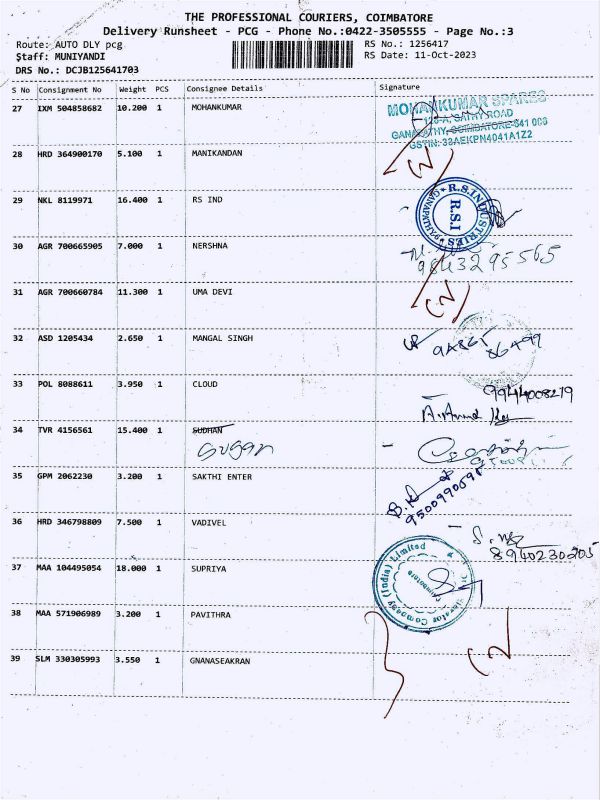 THE PROFESSIONAL COURIERS, COIMBATORE
Delivery Runsheet - PCG - Phone No.:0422-3505555 - Page No.:3
Route: AUTO DLY pcg
RS No.: 1256417
Staff: MUNIYANDI
RS Date: 11-Oct-2023
DRS No.: DCJB125641703
S No Consignment No Weight PCS Consignee Details Signature
27 IXM 504858682 10.200 1 MOHANKUMAR
MOHANKUMAR SPARES
GANAPATHY, COIMBATORE-641 006
GSTIN: 33AEKPN4041A1Z2
28 HRD 364900170 5.100 1 MANIKANDAN
29 NKL 8119971 16.400 1 RS IND
R.S.INDUSTRIES
R.S.I
30 AGR 700665905 7.000 1 NERSHNA
9843295565
31 AGR 700660784 11.300 1 UMA DEVI
32 ASD 1205434 2.650 1 MANGAL SINGH
33 POL 8088611 3.950 1 CLOUD
9944008219
34 TVR 4156561 15.400 1 SUDHAN
Sugan
35 GPM 2062230 3.200 1 SAKTHI ENTER
9500990695
36 HRD 346798809 7.500 1 VADIVEL
8940230205
37 MAA 104495054 18.000 1 SUPRIYA
Company (India) Limited
Coimbatore
38 MAA 571906989 3.200 1 PAVITHRA
39 SLM 330305993 3.550 1 GNANASEAKRAN